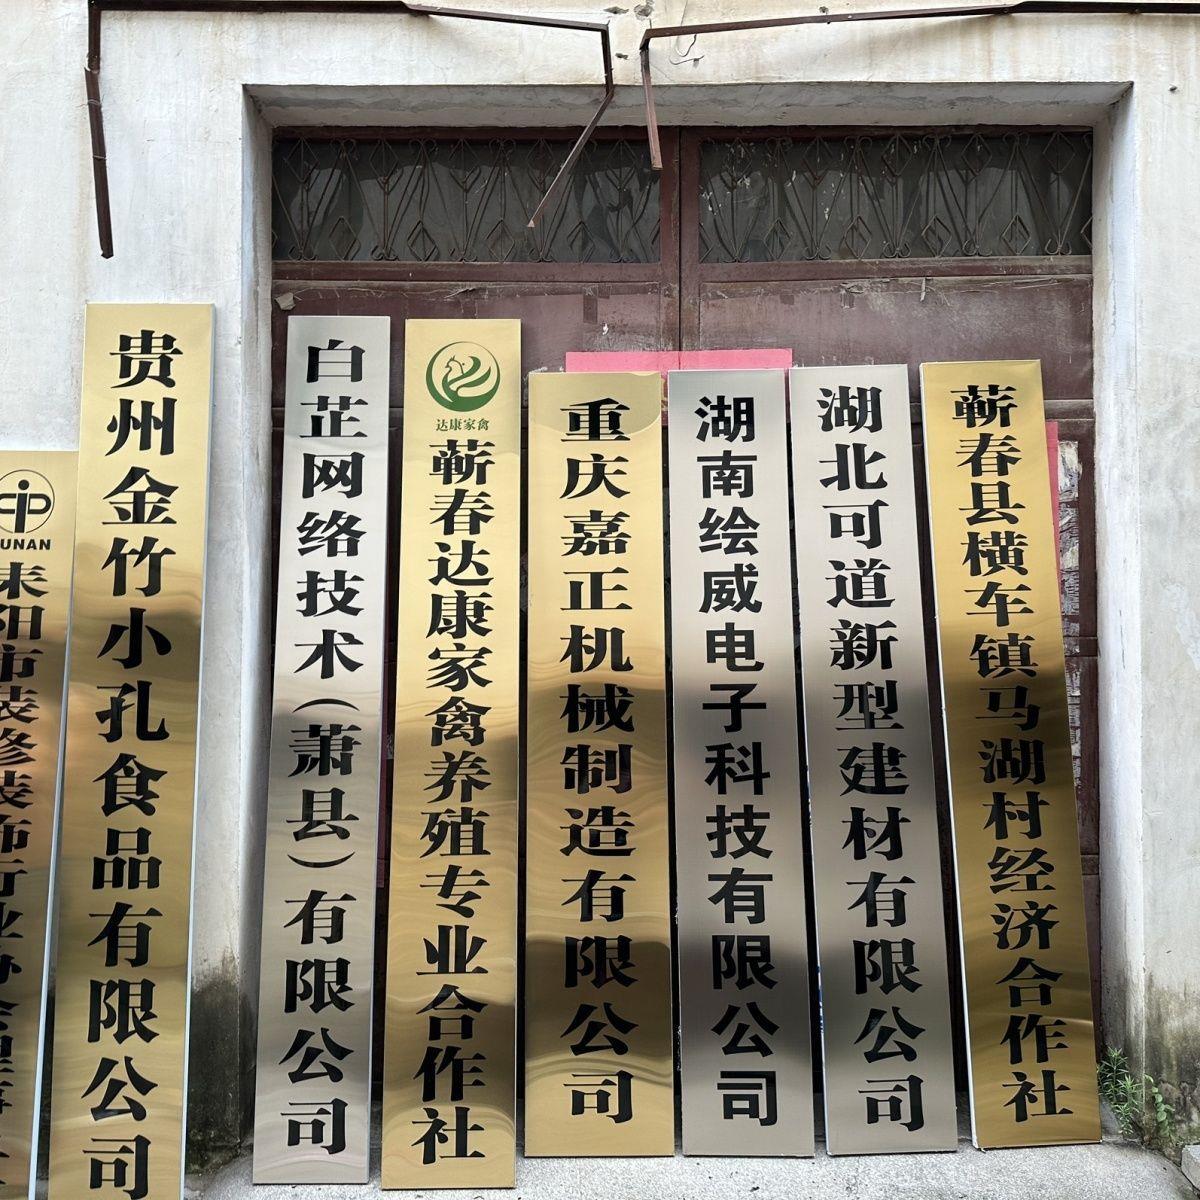 UNAN
耒阳市装修装饰行业协会
贵州金竹小孔食品有限公司
白芷网络技术（萧县）有限公司
达康家禽
蕲春达康家禽养殖专业合作社
重庆嘉正机械制造有限公司
湖南绘威电子科技有限公司
湖北可道新型建材有限公司
蕲春县横车镇马湖村经济合作社